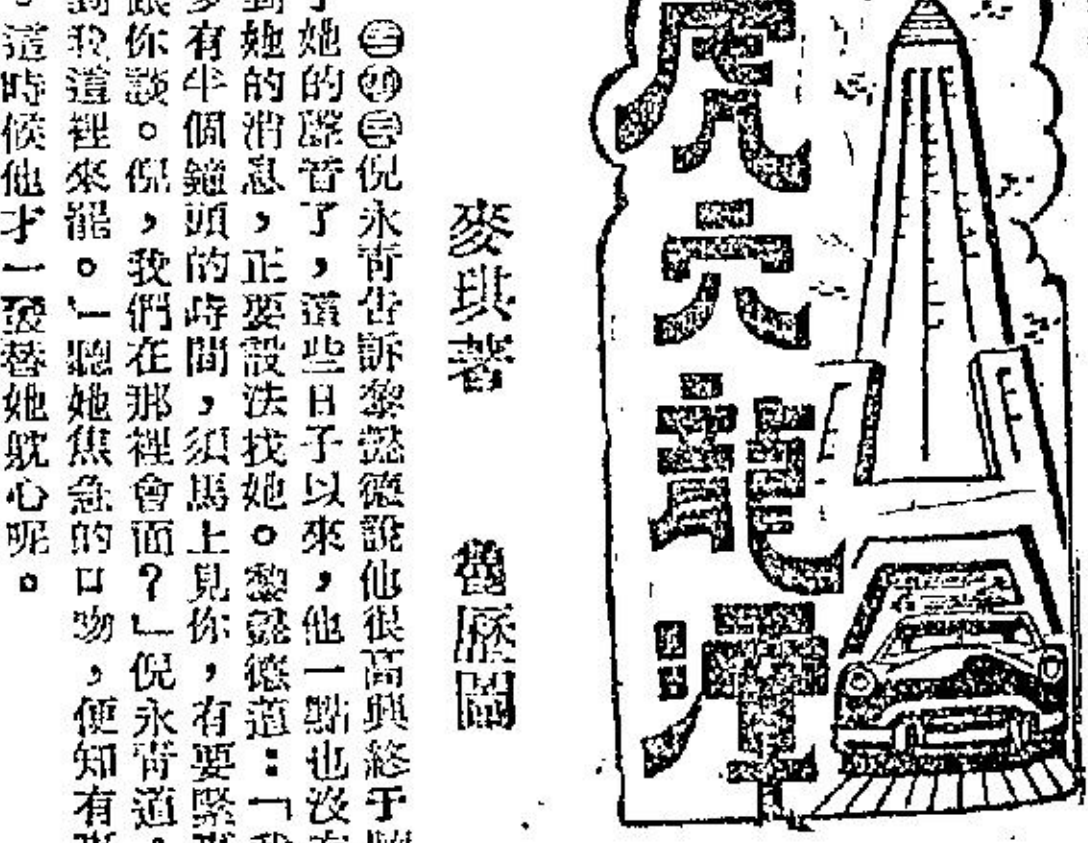 虎穴龍潭
麥琪著
歷圖
倪永靑吿訴黎懿德說他很高興終于聽
了她的聲音了，這些日子以來，他一點也沒有
到她的消息，正要設法找她。黎懿德道：「我
多有半個鐘頭的時間，須馬上見你，有要緊事
跟你談。倪，我們在那裡會面？」倪永靑道：
到我這裡來罷。」聽她焦急的口吻，便知有事
。這時候他才一發替她躭心呢。